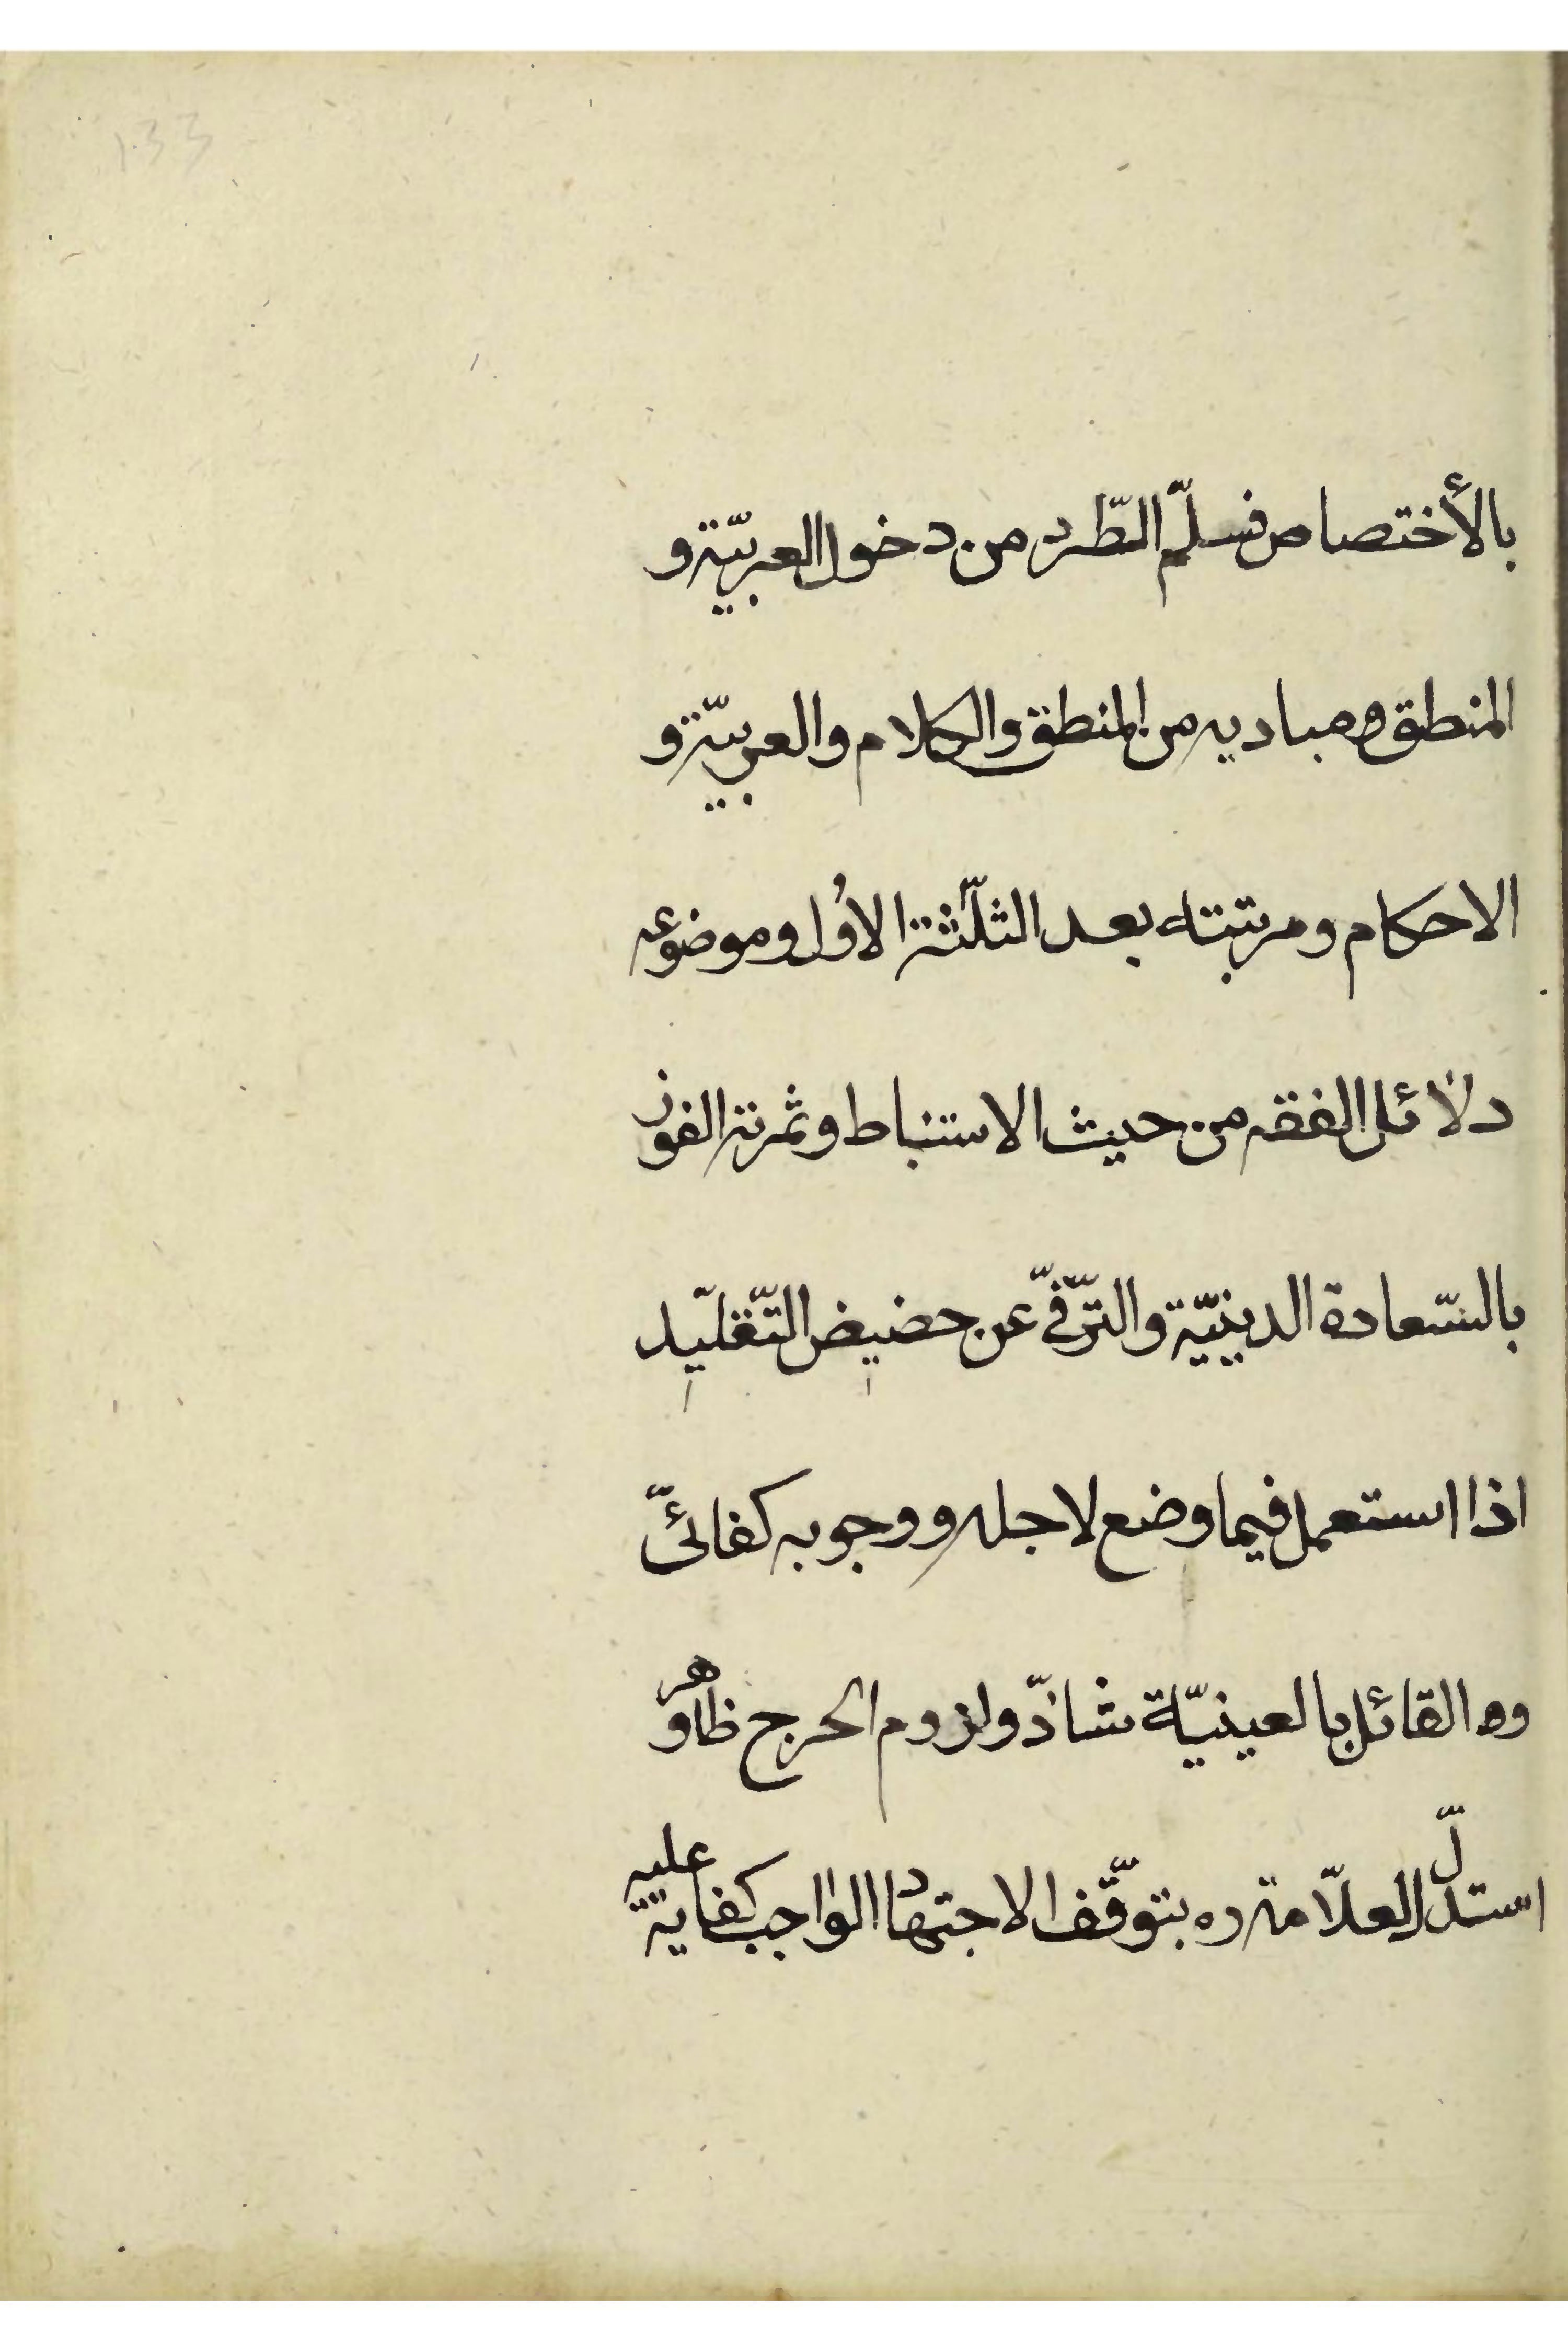 بالأختصاص فسلّم الطّرد من دخول العربيّة و
المنطق ومباديه من المنطق والكلام والعربيّة و
الاحكام ومرتبته بعد الثلّثة الاُول وموضوعه
دلائل الفقه من حيث الاستنباط وثمرته الفوز
بالسّعادة الدينيّة والترّقّى عن حضيض التّقليد
اذا استعمل فيما وضع لاجله ووجوبه كفائىّ
والقائل بالعينيّة شاذّ ولزوم الحرج ظاهر و
استدلّ العلاّمة ره بتوقّف الاجتهاد الواجب كفاية عليه